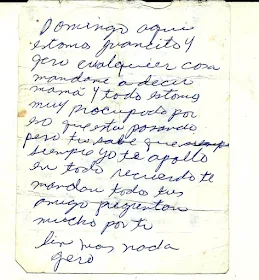 Domingo aqui
estamos juancito y
gero cualquier cosa
mandame a decir
mamá y todo estamos
muy procupado por
lo que esta pasando
pero tu sabe que
siempre yo te apollo
en todo recuerdo te
mandan todos tus
amigo pregentan
mucho por ti
Sin mas nada
gero